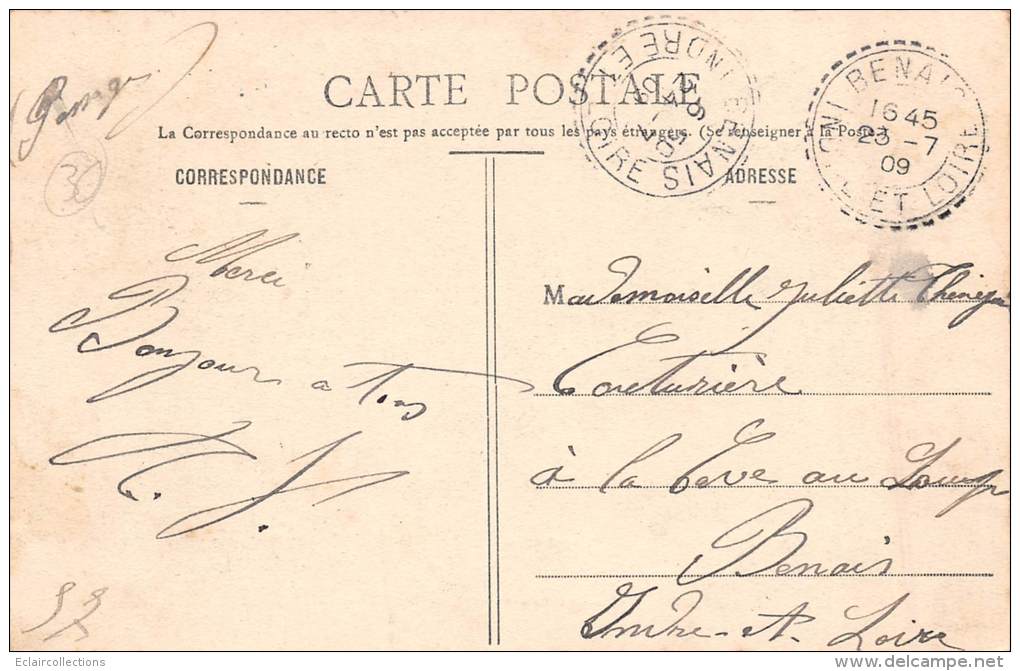 CARTE POSTALE
La Correspondance au recto n'est pas acceptée par tous les pays étrangers. (Se renseigner à la Poste)
CORRESPONDANCE
ADRESSE
BENAIS
16 45
23 -7
09
INDRE ET LOIRE
BENAIS
INDRE ET LOIRE
30
Merci
Bonjour a tous
Mademoiselle Juliette
Couturière
à la Cave au Loup
Benais
Indre-et-Loire
Eclaircollections
www.delcampe.net